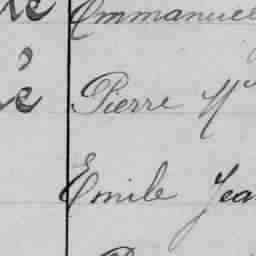 Emmanuel
Pierre M
Emile Jea